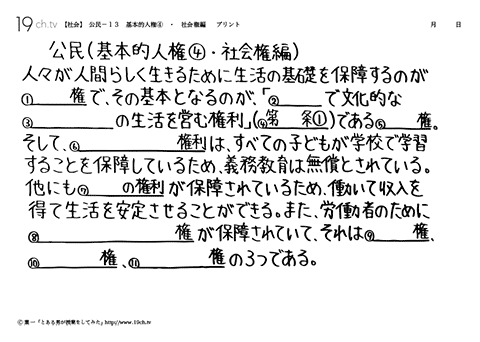 19ch.tv 【社会】 公民－13 基本的人権④ ・ 社会権編 プリント 月 日
公民(基本的人権④・社会権編)
人々が人間らしく生きるために生活の基礎を保障するのが
①____権で、その基本となるのが、「②____で文化的な
③________の生活を営む権利」(④第__条①)である⑤____権。
そして、⑥____________権利は、すべての子どもが学校で学習
することを保障しているため、義務教育は無償とされている。
他にも⑦____の権利が保障されているため、働いて収入を
得て生活を安定させることができる。また、労働者のために
⑧________________権が保障されていて、それは⑨____権、
⑩________権、⑪________権の3つである。
© 葉一「とある男が授業をしてみた」http://www.19ch.tv